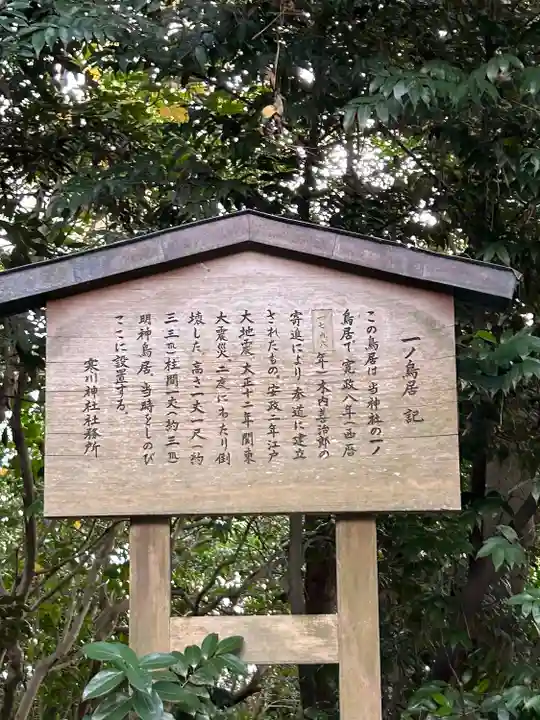 一ノ鳥居 記
この鳥居は当神社の一ノ
鳥居で、寛政八年(西暦
一七九六)年 木内善治郎の
寄進により参道に建立
されたもの。安政二年江戸
大地震、大正十二年関東
大震災、二度にわたり倒
壊した。高さ一丈一尺(約
三三m)柱間一丈(約三m)
明神鳥居、当時をしのび
ここに設置する。
寒川神社社務所